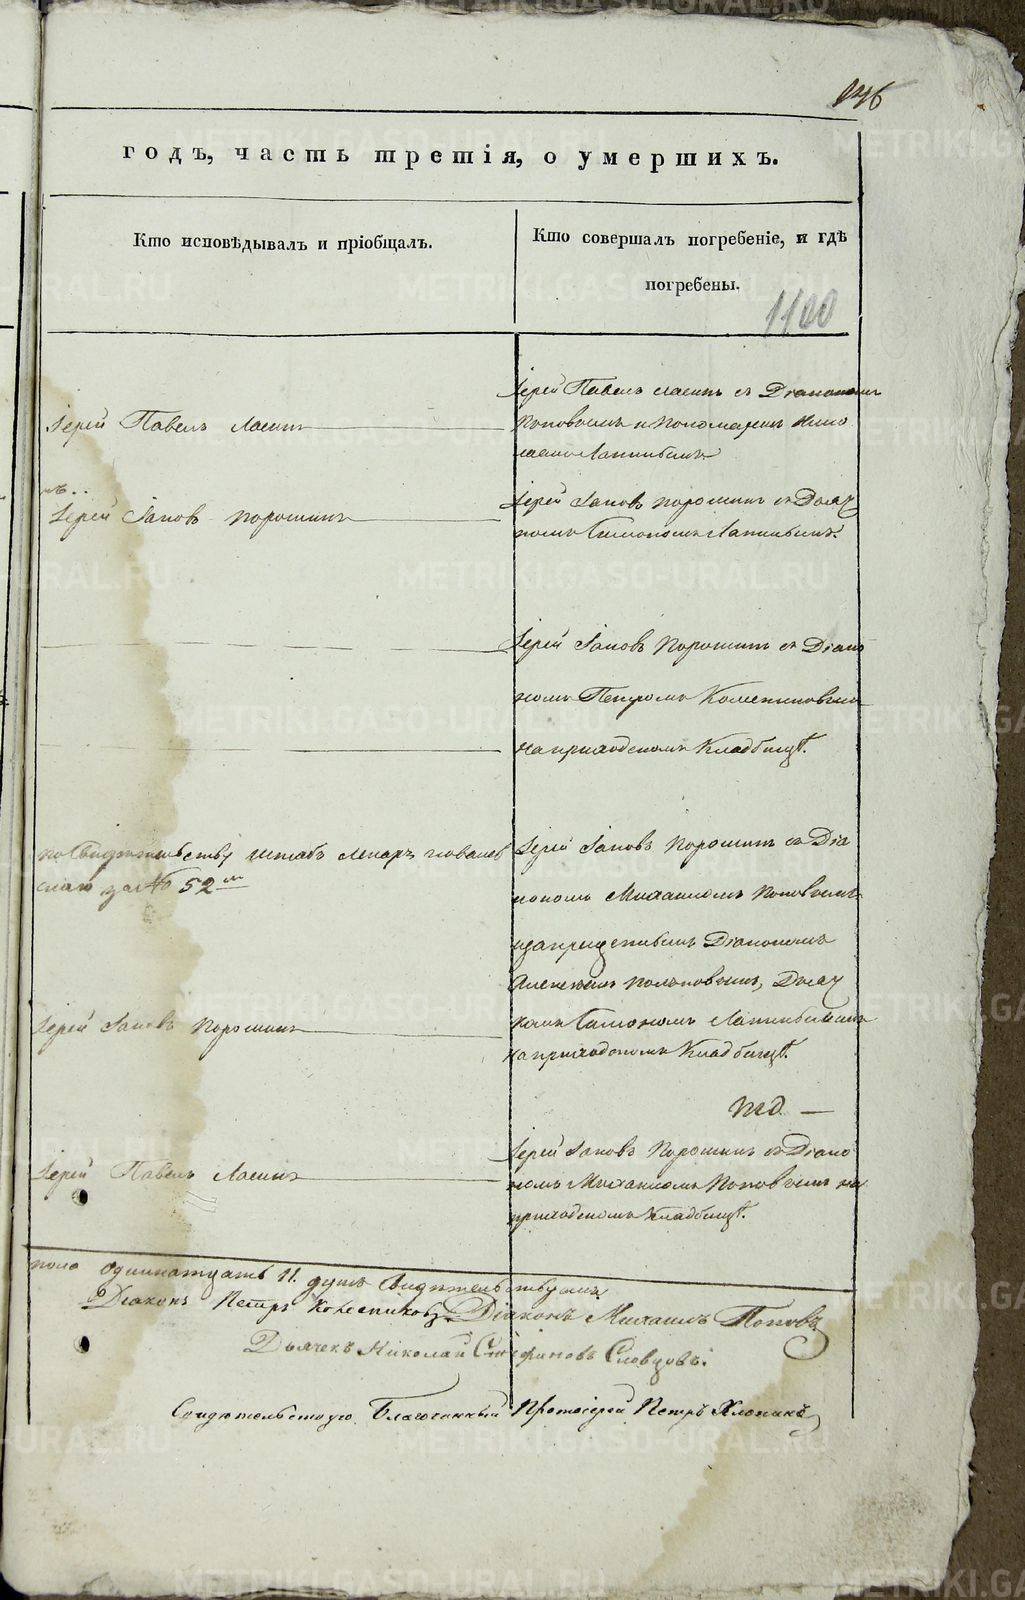 146
годъ, часть третія, о умершихъ.
Кто исповѣдывалъ и пріобщалъ.
Кто совершалъ погребеніе, и гдѣ
погребены.
1100
Іерей Павелъ Ласинъ
Іерей Павелъ Ласинъ съ Діакономъ
Поповымъ и Пономаремъ Нико
лаемъ Лапинымъ
Іерей Іаковъ Порошинъ
Іерей Іаковъ Порошинъ съ Дьяч
комъ Симономъ Лапинымъ.
Іерей Іаковъ Порошинъ съ Діако
номъ Петромъ Колесниковымъ
на приходскомъ Кладбищѣ.
по Свидѣтельству Штабъ Лекаря
скаго за № 52м
Іерей Іаковъ Порошинъ съ Діа
кономъ Михаиломъ Поповымъ
и запрещеннымъ Діакономъ
Алексѣемъ Дьяч
комъ Симономъ Лапинымъ
на приходскомъ Кладбищѣ.
Іерей Іаковъ Порошинъ
Іерей Павелъ Ласинъ
Іерей Іаковъ Порошинъ съ Діако
номъ Михаиломъ Поповымъ на
приходскомъ Кладбищѣ.
пола одиннатцать 11. душъ Свидѣтельствуемъ
Діаконъ Петръ Колесниковъ Діаконъ Михаилъ Поповъ
Дьячекъ Николай Стефановъ Словцовъ.
Свидѣтельствую Благочинный Протоіерей Петръ Хлопинъ
METRIKI.GASO-URAL.RU